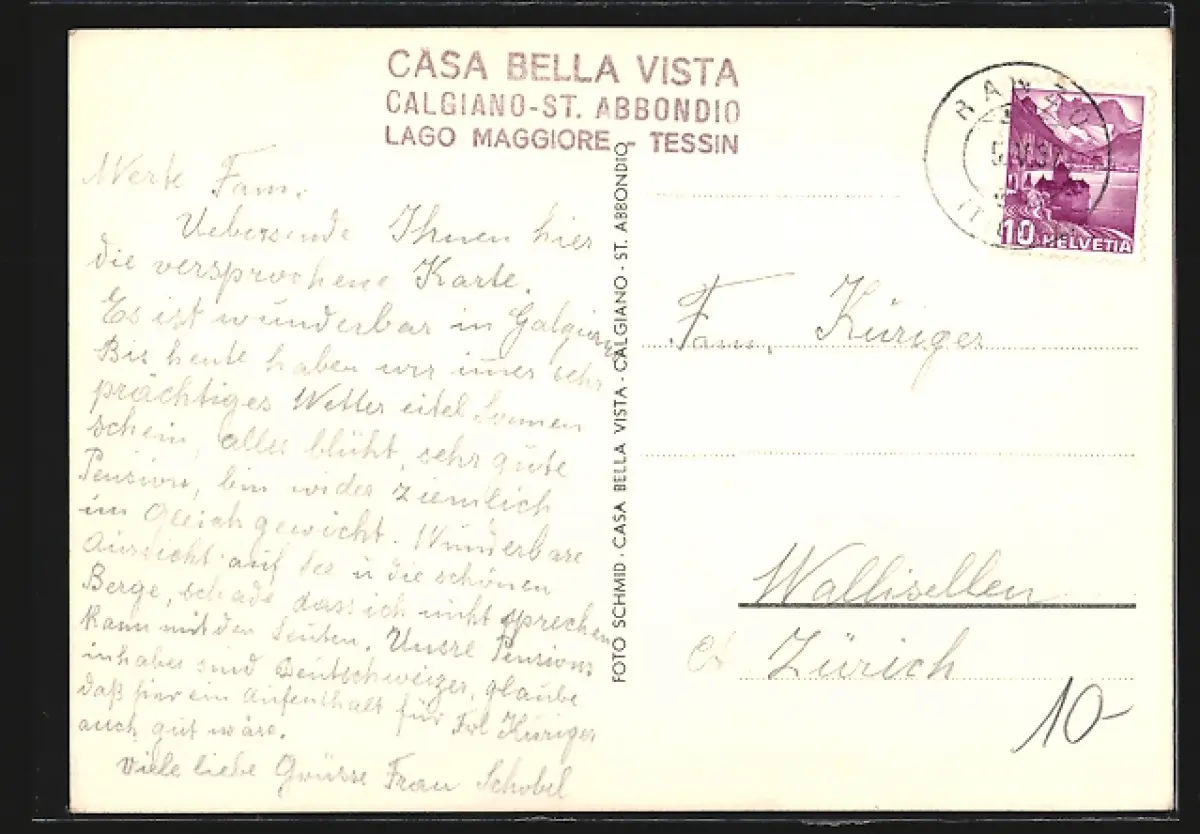 CASA BELLA VISTA
CALGIANO-ST. ABBONDIO
LAGO MAGGIORE - TESSIN
Werte Fam.
Uebersende Ihnen hier
die versprochene Karte.
Es ist wunderbar in
Bis heute haben wir imer sehr
prächtiges Wetter eitel Sonnen
schein, alles blüht, sehr gute
Pension, bin wider ziemlich
im Gleichgewicht. Wunderbare
Aussicht auf See u die schönen
Berge, schade dass ich nicht sprechen
kann mit den Leuten. Unsre Pensions
inhaber sind Deutschweizer, glaube
daß hier ein Aufenthalt für Frl Küriger
auch gut wäre.
Viele liebe Grüsse Frau Schobel
FOTO SCHMID · CASA BELLA VISTA · CALGIANO · ST. ABBONDIO
RANZO
10 HELVETIA
Fam. Küriger
Wallisellen
Zürich
10-